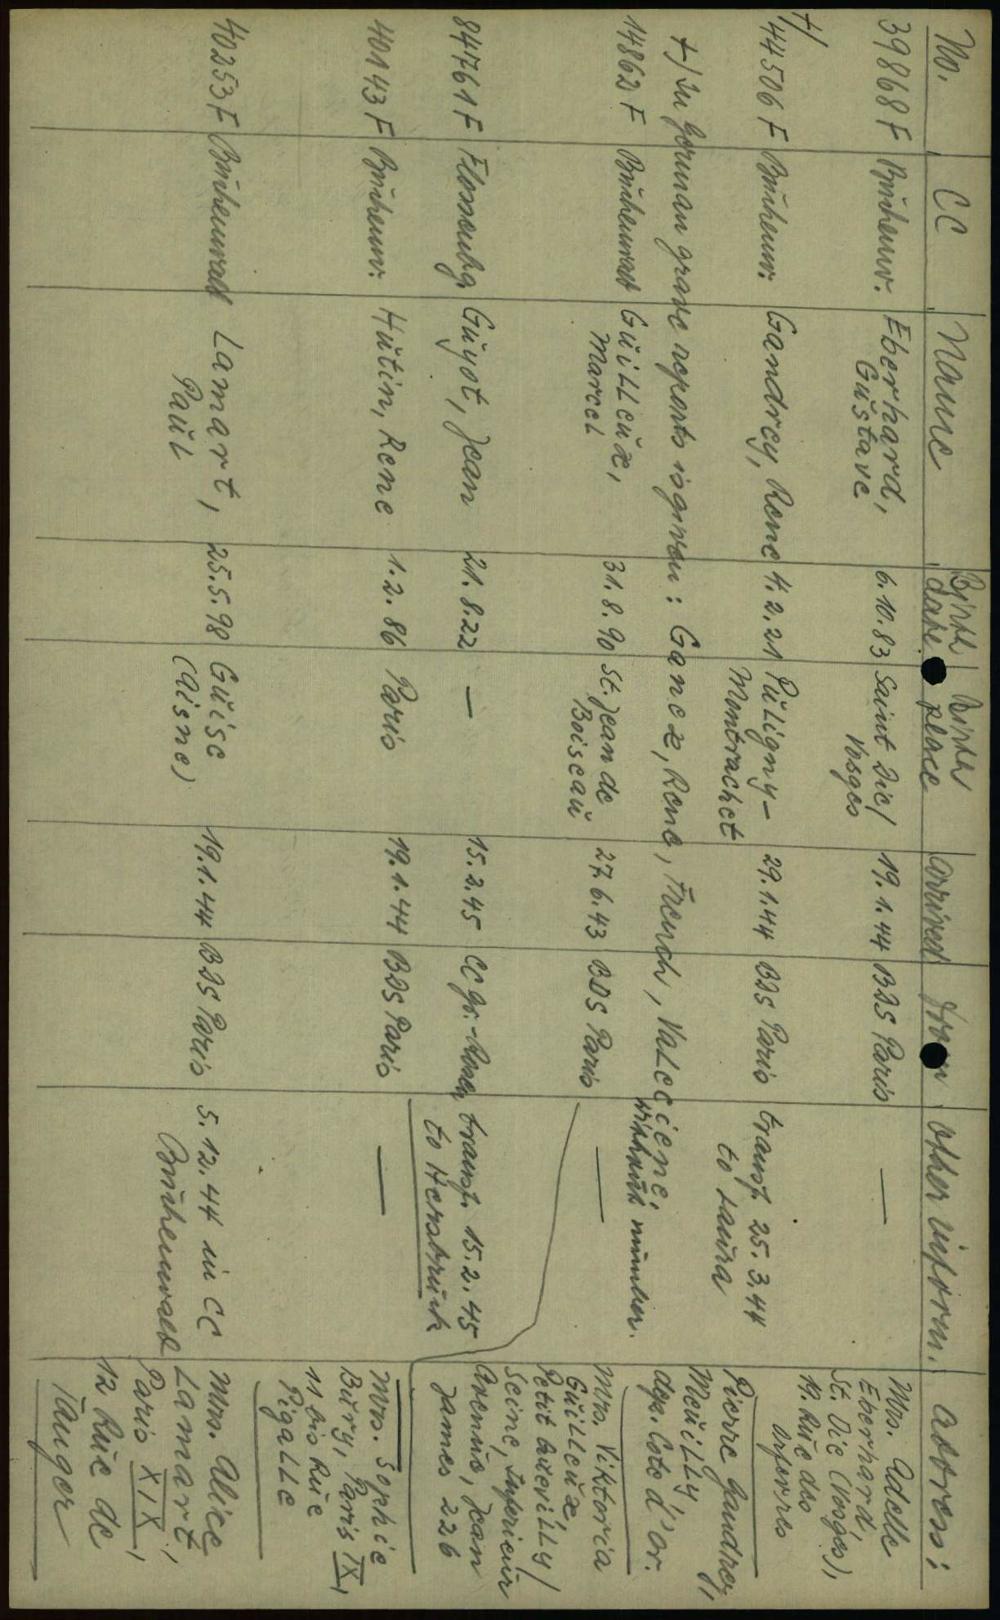 No. CC Name Birth date Birth place arrived from other inform. address:
39868 F Buchenw. Eberhard, 6.10.83 Saint Die/ 19.1.44 BDS Paris — Mrs. Adelle
Gustave Vosges Eberhard,
St. Die (Vosges),
19. Rue des
Orfevres
+/
44506 F Buchenw. Gandrey, Rene 4.2.21 Puligny- 29.1.44 BDS Paris transf. 25.3.44 Pierre Gandrey,
Montrachet to Laura Meuilly,
dep. Cote d'or.
+/ In German grave reports is given: Ganex, Rene, French, Valeciene,
without number.
14862 F Buchenwald Guilleux, 31.8.90 St. Jean de 27.6.43 BDS Paris — Mrs. Viktoria
Marcel Boiseau Guilleux,
Petit Quevilly/
Seine, Inferieur
Avenue, Jean
James 226
84761 F Flossenbg Guyot, Jean 21.8.22 — 15.2.45 CC Gr.-Rosen transf. 15.2.45
to Hersbruck
40143 F Buchenw. Hutin, Rene 1.2.86 Paris 19.1.44 BDS Paris — Mrs. Sophie
Bury, Paris IX,
11 bis Rue
Pigalle
40253 F Buchenwald Lamart, 25.5.98 Guise 19.1.44 BDS Paris 5.12.44 in CC Mrs. Alice
Paul (Aisne) Buchenwald Lamart,
Paris XIX,
12 Rue de
Tanger